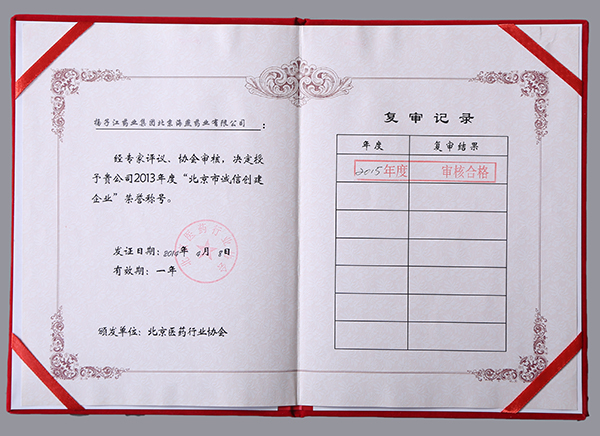 扬子江药业集团北京海燕药业有限公司：
经专家评议、协会审核，决定授
予贵公司2013年度“北京市诚信创建
企业”荣誉称号。
发证日期：2014年 4月 8日
有效期：一年
颁发单位：北京医药行业协会
北京医药行业协会
复审记录
年度 复审结果
2015年度 审核合格